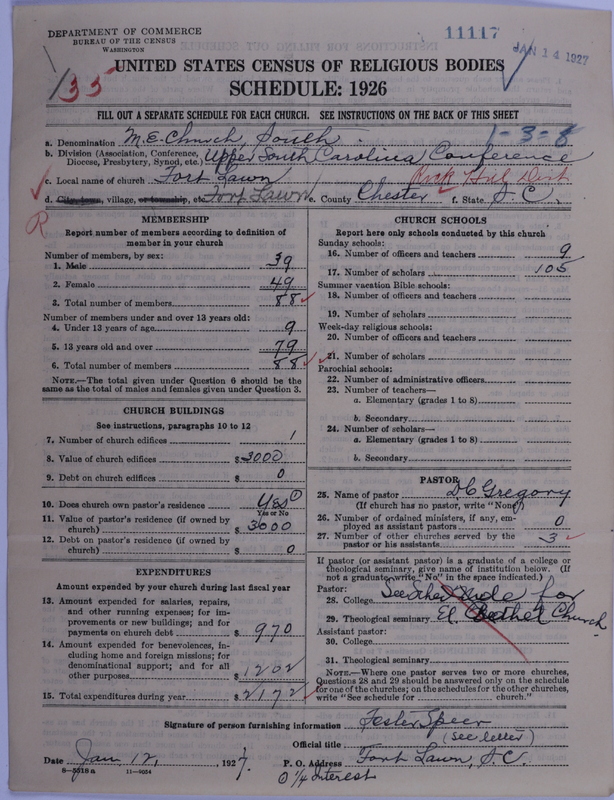 DEPARTMENT OF COMMERCE
BUREAU OF THE CENSUS
WASHINGTON
11117
JAN 14 1927
135
UNITED STATES CENSUS OF RELIGIOUS BODIES
SCHEDULE: 1926
FILL OUT A SEPARATE SCHEDULE FOR EACH CHURCH. SEE INSTRUCTIONS ON THE BACK OF THIS SHEET
1-3-8
a. Denomination M.E. Church, South
b. Division (Association, Conference, Diocese, Presbytery, Synod, etc.) Upper South Carolina Conference
c. Local name of church Fort Lawn Rock Hill Dist
d. City, town, village, or township, etc. Fort Lawn e. County Chester f. State S. C.
R
MEMBERSHIP
Report number of members according to definition of
member in your church
Number of members, by sex:
1. Male 39
2. Female 49
3. Total number of members 88
Number of members under and over 13 years old:
4. Under 13 years of age 9
5. 13 years old and over 79
6. Total number of members 88
NOTE.—The total given under Question 6 should be the
same as the total of males and females given under Question 3.
CHURCH BUILDINGS
See instructions, paragraphs 10 to 12
7. Number of church edifices 1
8. Value of church edifices $3000
9. Debt on church edifices $ 0
10. Does church own pastor's residence Yes ①
Yes or No
11. Value of pastor's residence (if owned by
church) $3000
12. Debt on pastor's residence (if owned by
church) $ 0
EXPENDITURES
Amount expended by your church during last fiscal year
13. Amount expended for salaries, repairs,
and other running expenses; for im-
provements or new buildings; and for
payments on church debt $ 970
14. Amount expended for benevolences, in-
cluding home and foreign missions; for
denominational support; and for all
other purposes $ 1202
15. Total expenditures during year $ 2172
CHURCH SCHOOLS
Report here only schools conducted by this church
Sunday schools:
16. Number of officers and teachers 9
17. Number of scholars 105
Summer vacation Bible schools:
18. Number of officers and teachers
19. Number of scholars
Week-day religious schools:
20. Number of officers and teachers
21. Number of scholars
Parochial schools:
22. Number of administrative officers
23. Number of teachers—
a. Elementary (grades 1 to 8)
b. Secondary
24. Number of scholars—
a. Elementary (grades 1 to 8)
b. Secondary
PASTOR
25. Name of pastor D C Gregory
(If church has no pastor, write "None")
26. Number of ordained ministers, if any, em-
ployed as assistant pastors 0
27. Number of other churches served by the
pastor or his assistants 3
If pastor (or assistant pastor) is a graduate of a college or
theological seminary, give name of institution below. (If
not a graduate, write "No" in the space indicated.)
Pastor:
28. College See for
29. Theological seminary El Bethel Church
Assistant pastor:
30. College
31. Theological seminary
NOTE.—Where one pastor serves two or more churches,
Questions 28 and 29 should be answered only on the schedule
for one of the churches; on the schedules for the other churches,
write "See schedule for ______ church."
Signature of person furnishing information Lesler Speer
Official title (see letter)
Date Jan. 12, 1927. P. O. Address Fort Lawn, S.C.
8—5518a 11—9024
① 1/4 Interest